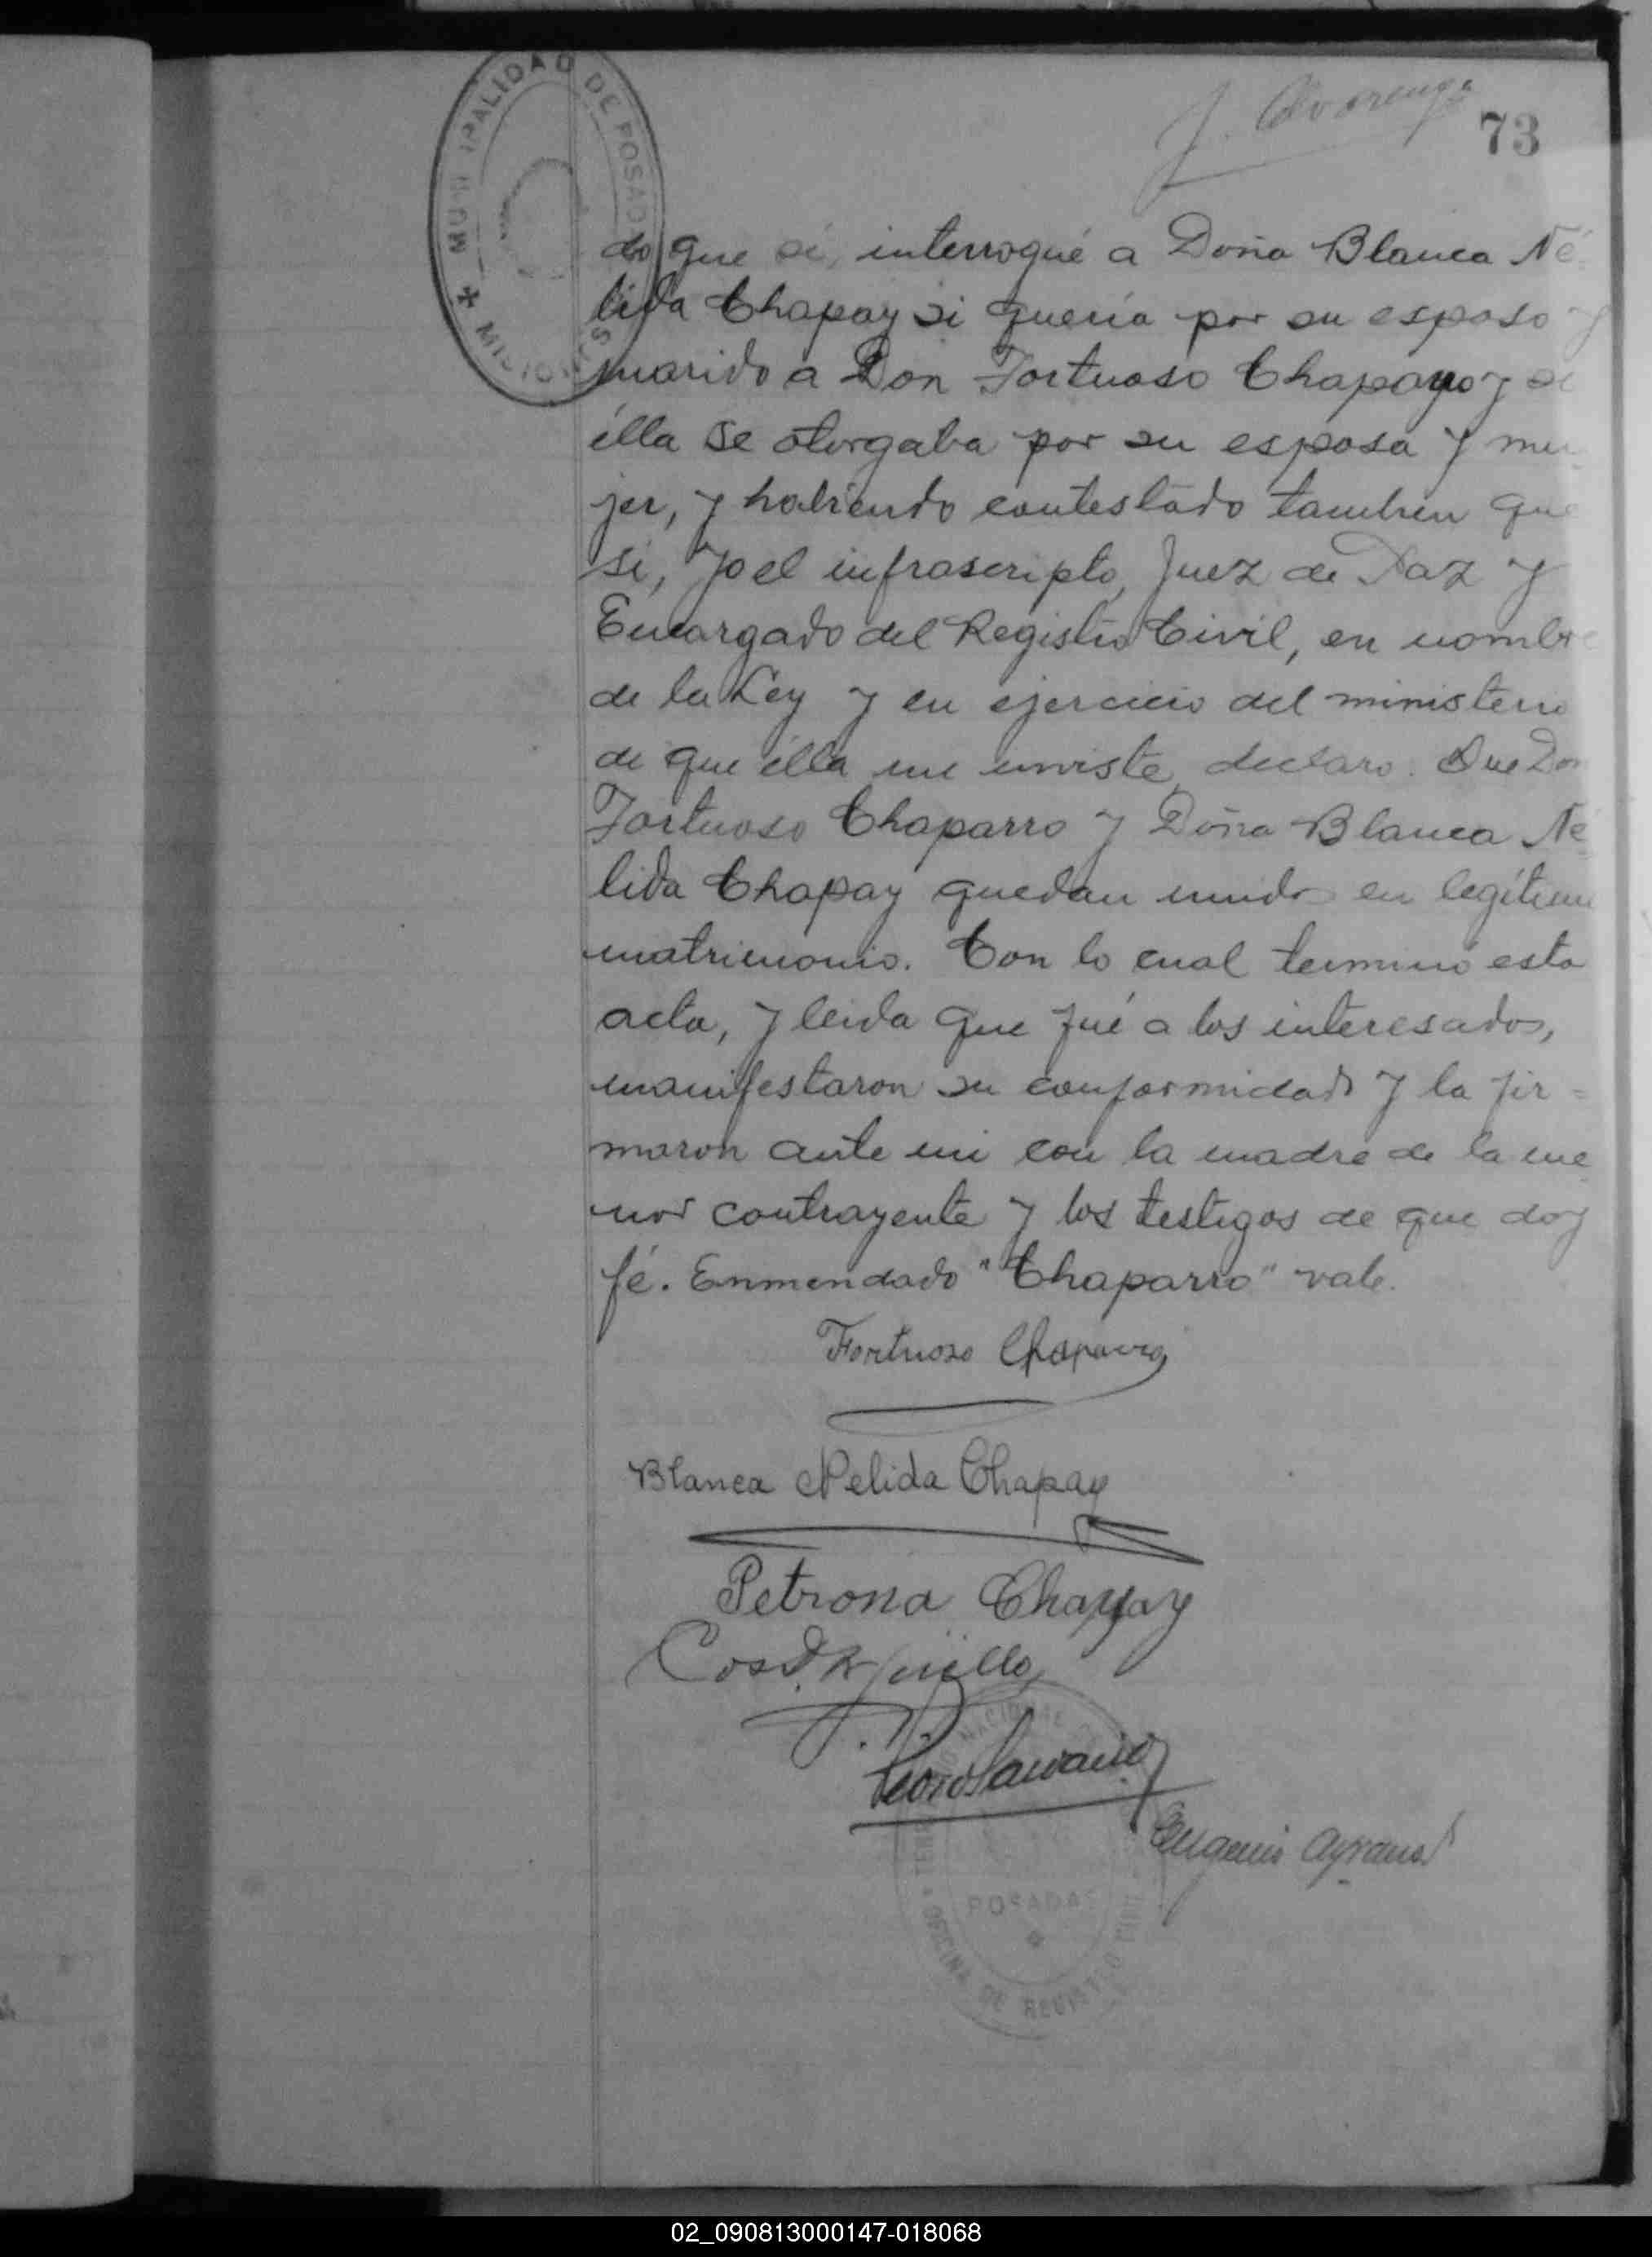 MUNICIPALIDAD DE POSADAS
MISIONES
J. Alvarenga
73
do que sí, interrogué a Doña Blanca Né-
lida Chapay si quería por su esposo y
marido a Don Fortuoso Chaparro y si
élla se otorgaba por su esposa y mu-
jer, y habiendo contestado tambien que
si, yo el infrascripto, Juez de Paz y
Encargado del Registro Civil, en nombre
de la Ley y en ejercicio del ministerio
de que élla me inviste, declaro: Que Don
Fortuoso Chaparro y Doña Blanca Né-
lida Chapay quedan unidos en legítimo
matrimonio. Con lo cual terminó esta
acta, y leida que fué a los interesados,
manifestaron su conformidad y la fir=
maron ante mi con la madre de la me
nor contrayente y los testigos de que doy
fé. Enmendado "Chaparro" vale.
Fortuoso Chaparro
Blanca Nelida Chapay
Petrona Chapay
Eugenio
POSADAS
OFICINA DE REGISTRO CIVIL
02_090813000147-018068